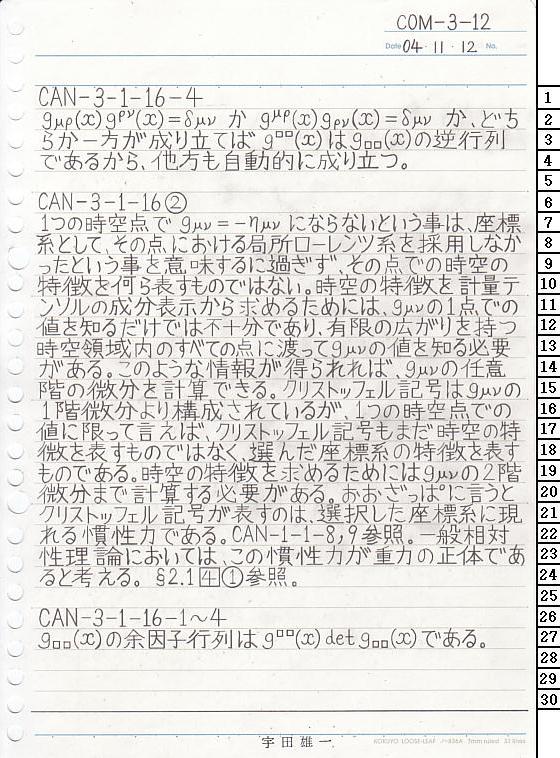 COM-3-12
Date 04・11・12 No.
CAN-3-1-16-4
gμρ(x)g^ρν(x)=δμν か g^μρ(x)gρν(x)=δμν か、どち
らか一方が成り立てば g^□□(x)はg□□(x)の逆行列
であるから、他方も自動的に成り立つ。
CAN-3-1-16②
1つの時空点で gμν=-ημν にならないという事は、座標
系として、その点における局所ローレンツ系を採用しなか
ったという事を意味するに過ぎず、その点での時空の
特徴を何ら表すものではない。時空の特徴を計量テ
ンソルの成分表示から求めるためには、gμνの1点での
値を知るだけでは不十分であり、有限の広がりを持つ
時空領域内のすべての点に渡ってgμνの値を知る必要
がある。このような情報が得られれば、gμνの任意
階の微分を計算できる。クリストッフェル記号はgμνの
1階微分より構成されているが、1つの時空点での
値に限って言えば、クリストッフェル記号もまだ時空の特
徴を表すものではなく、選んだ座標系の特徴を表す
ものである。時空の特徴を求めるためにはgμνの2階
微分まで計算する必要がある。おおざっぱに言うと
クリストッフェル記号が表すのは、選択した座標系に現
れる慣性力である。CAN-1-1-8,9参照。一般相対
性理論においては、この慣性力が重力の正体であ
ると考える。§2.1 4 ①参照。
CAN-3-1-16-1～4
g□□(x)の余因子行列は g^□□(x) det g□□(x)である。
宇田雄一
KOKUYO LOOSE-LEAF ノ-836A 7mm ruled 31 lines
1
2
3
4
5
6
7
8
9
10
11
12
13
14
15
16
17
18
19
20
21
22
23
24
25
26
27
28
29
30